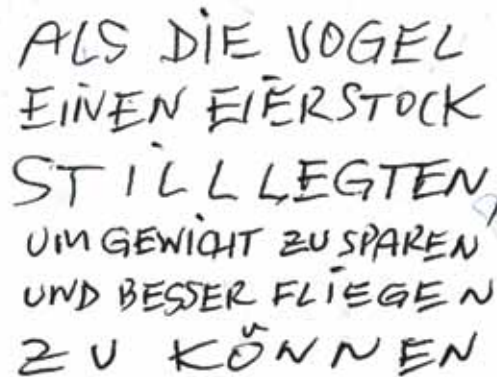 ALS DIE VOGEL
EINEN EIERSTOCK
STILLLEGTEN
UM GEWICHT ZU SPAREN
UND BESSER FLIEGEN
ZU KÖNNEN